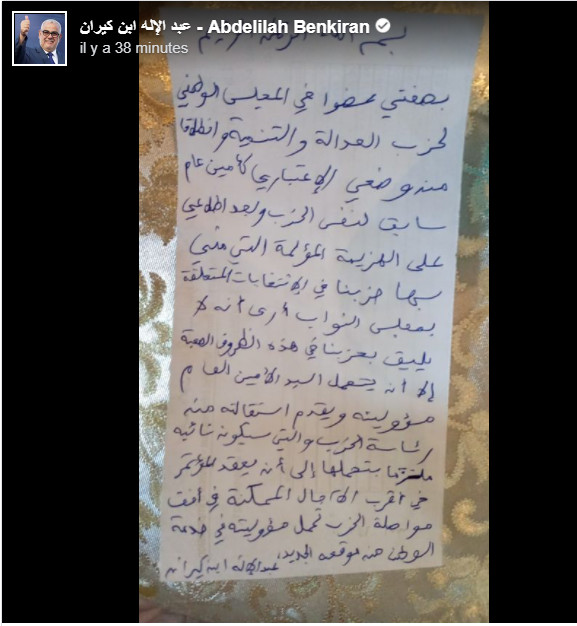 عبد الإله ابن كيران - Abdelilah Benkiran
il y a 38 minutes
بسم الله الرحمن الرحيم
بصفتي عضوا في المجلس الوطني
لحزب العدالة والتنمية وانطلاقا
من وضعي الإعتباري كأمين عام
سابق لنفس الحزب وبعد اطلاعي
على الهزيمة المؤلمة التي مني
بها حزبنا في الإنتخابات المتعلقة
بمجلس النواب أرى أنه لا
يليق بحزبنا في هذه الظروف الصعبة
إلا أن يتحمل السيد الأمين العام
مسؤوليته ويقدم استقالته من
رئاسة الحزب والتي سيكون نائبه
ملزما بتحملها إلى أن يعقد المؤتمر
في أقرب الآجال الممكنة في أفق
مواصلة الحزب تحمل مسؤوليته في خدمة
الوطن من موقعه الجديد، عبد الإله ابن كيران